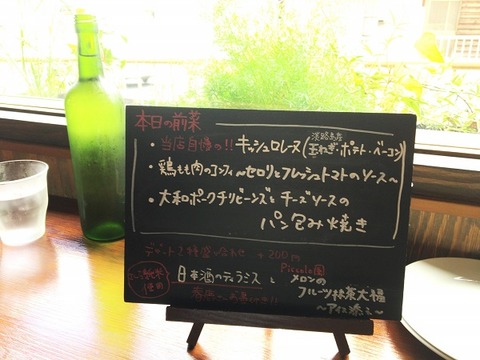 本日の前菜
・当店自慢の!! キッシュロレーヌ(玉ねぎ・ポテト・ベーコン)
淡路島産
・鶏もも肉のコンフィ〜セロリとフレッシュトマトのソース〜
・大和ポークチリビーンズとチーズソースの
パン包み焼き
デザート2種盛り合わせ +200円
純米使用
日本酒のティラミスと
Piccolo風
メロンの
フルーツ抹茶大福
〜アイス添え〜